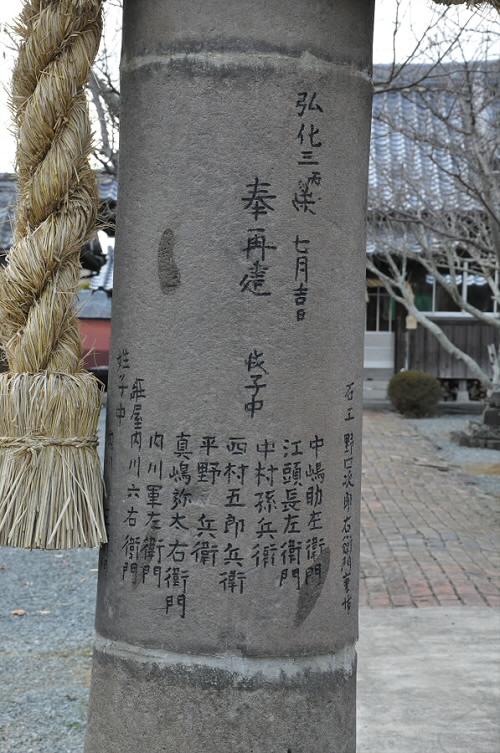 弘化三丙 七月吉日
奉再建
氏子中
石工 野口次郎右衛門
中嶋助左衛門
江頭長左衛門
中村孫兵衛
西村五郎兵衛
平野 兵衛
真嶋弥太右衛門
内川軍左衛門
屋内川六右衛門
姓子中